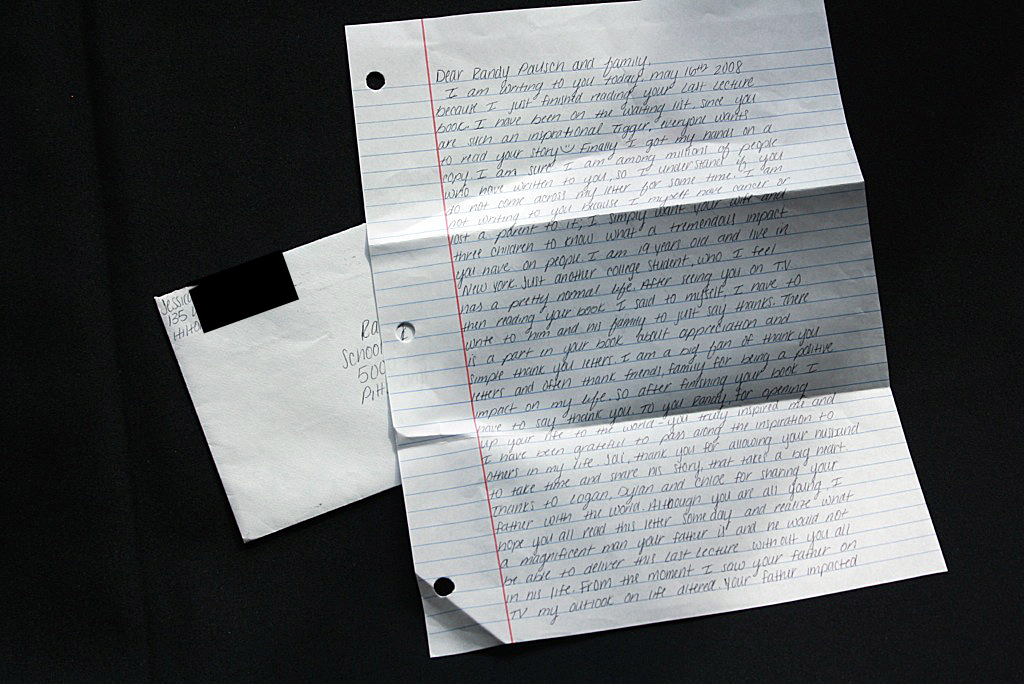 Dear Randy Pausch and family,
I am writing to you today, may 16th 2008
because I just finished reading your Last Lecture
book. I have been on the waiting list, since you
are such an inspirational Tigger, everyone wants
to read your story Finally I got my hands on a
copy. I am sure I am among millions of people
who have written to you, so I understand if you
do not come across my letter for some time. I am
not writing to you because I myself have cancer or
lost a parent to it, I simply want your wife and
three children to know what a tremendous impact
you have on people. I am 19 years old and live in
New York. Just another college student, who I feel
has a pretty normal life. After seeing you on T.V.
then reading your book I said to myself, I have to
write to him and his family to just say thanks. There
is a part in your book about appreciation and
simple thank you letters. I am a big fan of thank you
letters and often thank friends, family for being a positive
impact on my life. So after finishing your book I
have to say thank you. To you Randy, for opening
up your life to the world- you truly inspired me and
I have been grateful to pass along the inspiration to
others in my life. Jai, thank you for allowing your husband
to take time and share his story, that takes a big heart
Thanks to Logan, Dylan and Chloe for sharing your
father with the world. Although you are all young, I
hope you all read this letter someday and realize what
a magnificent man your father is and he would not
be able to deliver this Last Lecture without you all
in his life. From the moment I saw your father on
TV my outlook on life altered. Your father impacted
Jessic
135
Hilto
Ra
School
500
Pitt